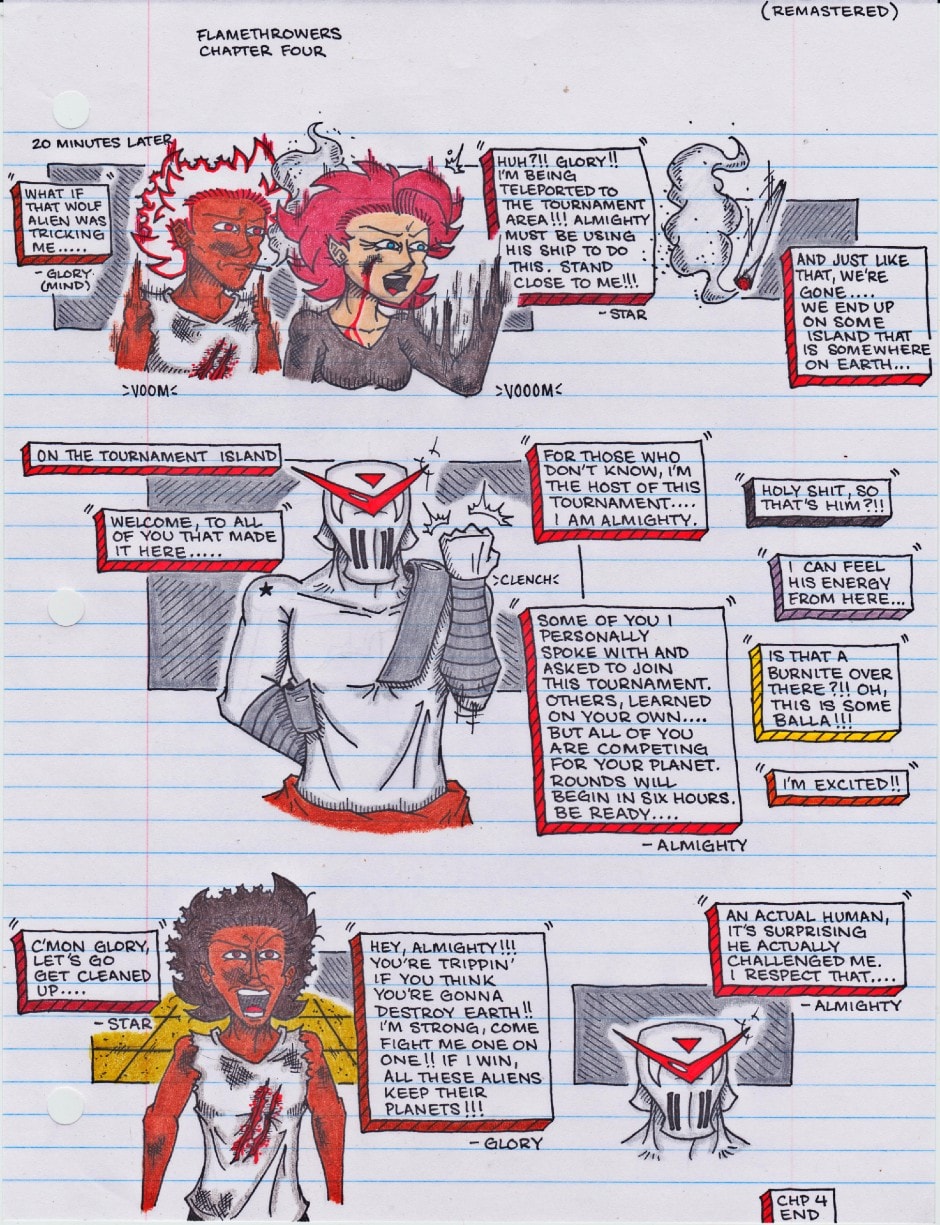 (REMASTERED)
FLAMETHROWERS
CHAPTER FOUR
20 MINUTES LATER
"WHAT IF
THAT WOLF
ALIEN WAS
TRICKING
ME....."
- GLORY
(MIND)
"HUH?!! GLORY!!
I'M BEING
TELEPORTED TO
THE TOURNAMENT
AREA!!! ALMIGHTY
MUST BE USING
HIS SHIP TO DO
THIS. STAND
CLOSE TO ME!!!"
- STAR
AND JUST LIKE
THAT, WE'RE
GONE....
WE END UP
ON SOME
ISLAND THAT
IS SOMEWHERE
ON EARTH...
VOOM
VOOOM
ON THE TOURNAMENT ISLAND
"WELCOME, TO ALL
OF YOU THAT MADE
IT HERE....."
"FOR THOSE WHO
DON'T KNOW, I'M
THE HOST OF THIS
TOURNAMENT....
I AM ALMIGHTY."
CLENCH
"SOME OF YOU I
PERSONALLY
SPOKE WITH AND
ASKED TO JOIN
THIS TOURNAMENT.
OTHERS, LEARNED
ON YOUR OWN....
BUT ALL OF YOU
ARE COMPETING
FOR YOUR PLANET.
ROUNDS WILL
BEGIN IN SIX HOURS.
BE READY...."
- ALMIGHTY
"HOLY SHIT, SO
THAT'S HIM?!!"
"I CAN FEEL
HIS ENERGY
FROM HERE..."
"IS THAT A
BURNITE OVER
THERE?!! OH,
THIS IS SOME
BALLA!!!"
"I'M EXCITED!!"
"C'MON GLORY,
LET'S GO
GET CLEANED
UP...."
- STAR
"HEY, ALMIGHTY!!!
YOU'RE TRIPPIN'
IF YOU THINK
YOU'RE GONNA
DESTROY EARTH!!
I'M STRONG, COME
FIGHT ME ONE ON
ONE!! IF I WIN,
ALL THESE ALIENS
KEEP THEIR
PLANETS!!!"
- GLORY
"AN ACTUAL HUMAN,
IT'S SURPRISING
HE ACTUALLY
CHALLENGED ME.
I RESPECT THAT...."
- ALMIGHTY
CHP 4
END